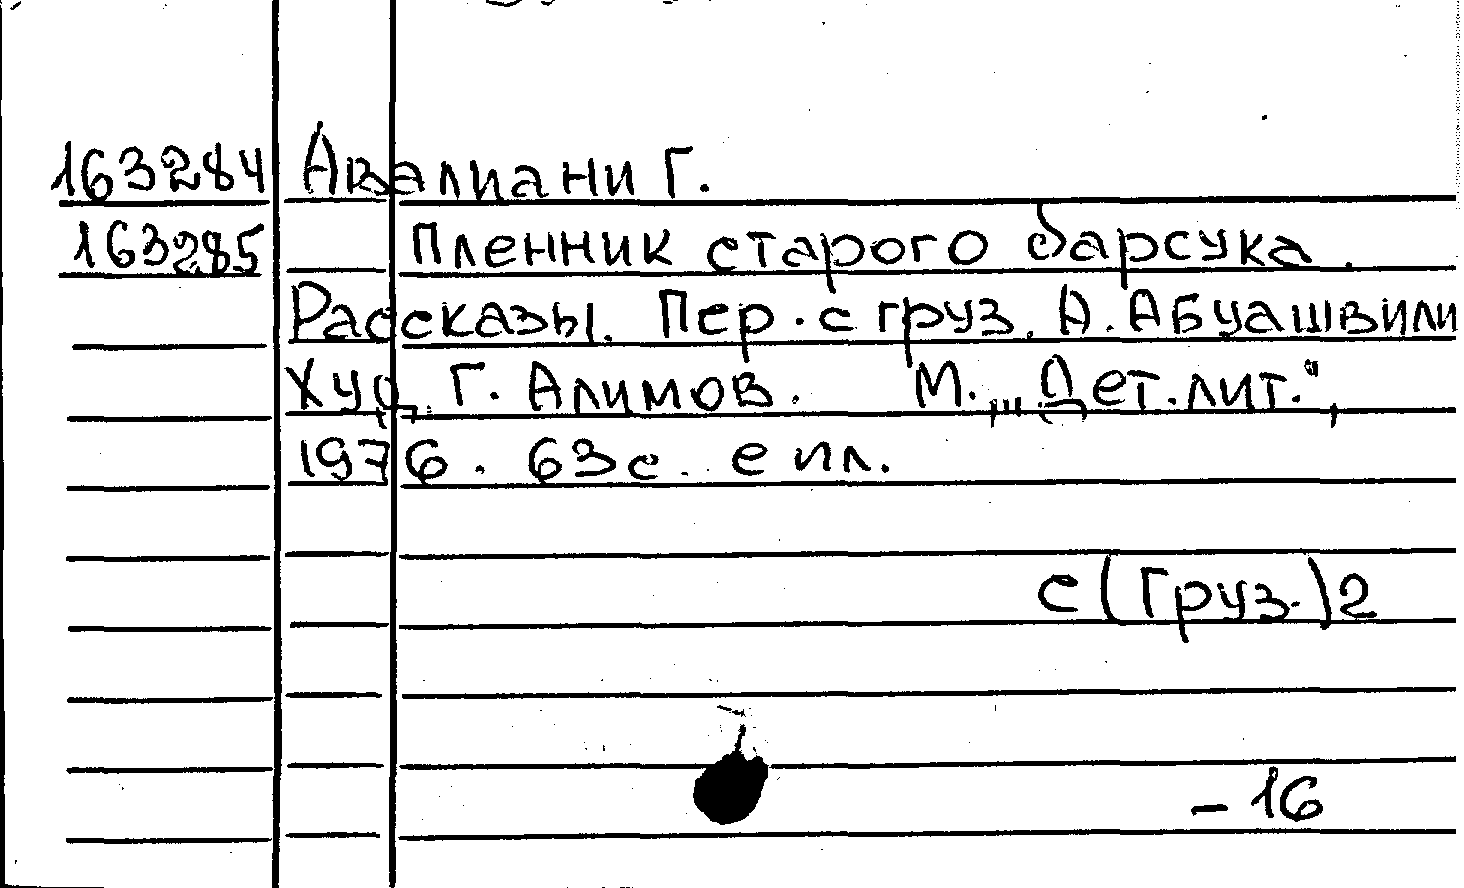 163284 Авалиани Г.
163285 Пленник старого барсука.
Рассказы. Пер. с груз. А. Абуашвили
Худ. Г. Алимов. М., „Дет. лит.",
1976. 63 с. с ил.
с (Груз.) 2
- 16